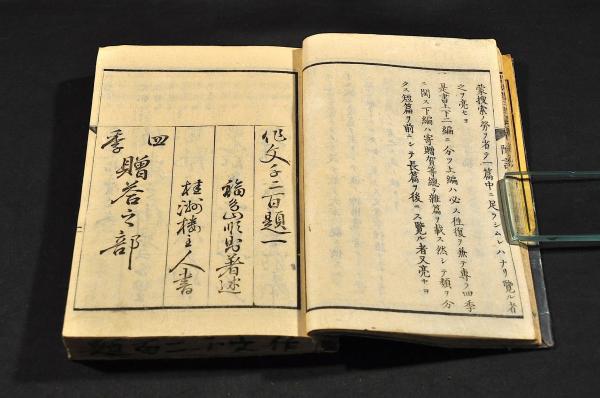 蒙搜索ノ勞ヲ省ヲ一篇中ニ足ラシムレハナリ覽ル者
之ヲ亮セヨ
是書上下二編ニ分ヲ上編ハ必ス往復ヲ兼テ專ラ四季
ニ関ス下編ハ寄贈賀等總テ雜篇ヲ載ス然シテ類ヲ分
クス短篇ヲ前ニシテ長篇ヲ後ニス覽ル者又亮セヨ
作文千二百題一
福島順則著述
桂洲樓主人書
四季
贈答之部
作文千二百題